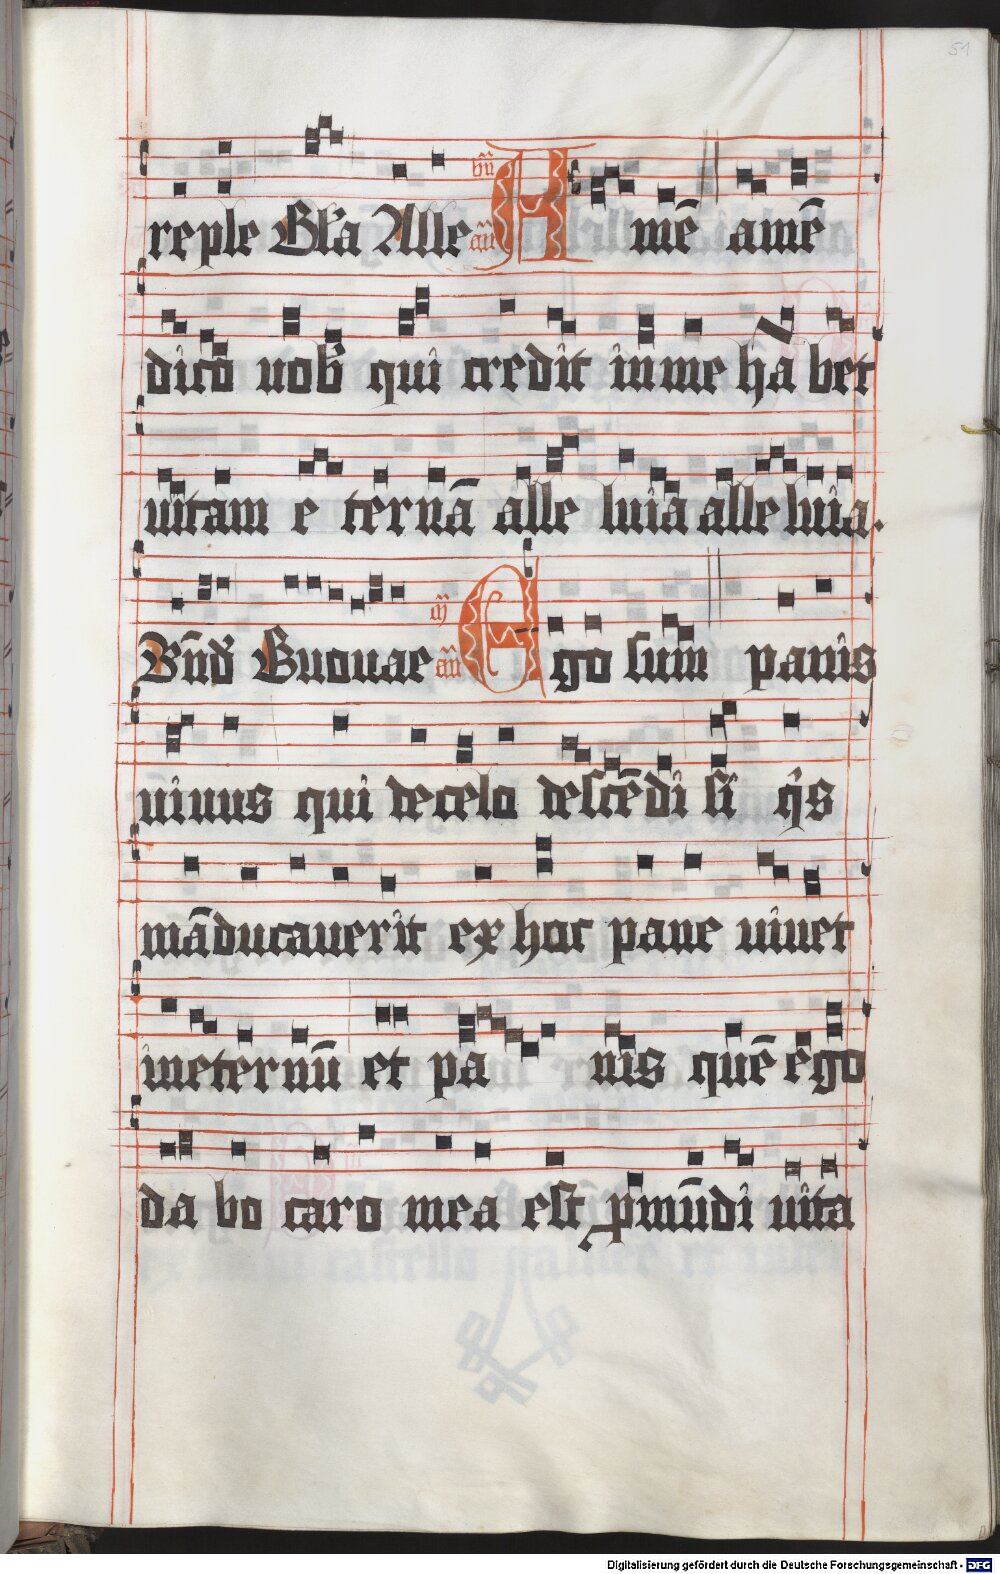 51
reple Gl'a Alle añ Amē amē
dico uob' qui credit inme habet
uitam eternā alle luia alleluia.
Bñd' Euouae añ Ego sum panis
uiuus qui decelo descēdi si q's
māducauerit ex hoc pane uiuet
ineternū et panis quē ego
dabo caro mea est p mūdi uita
Digitalisierung gefördert durch die Deutsche Forschungsgemeinschaft - DFG